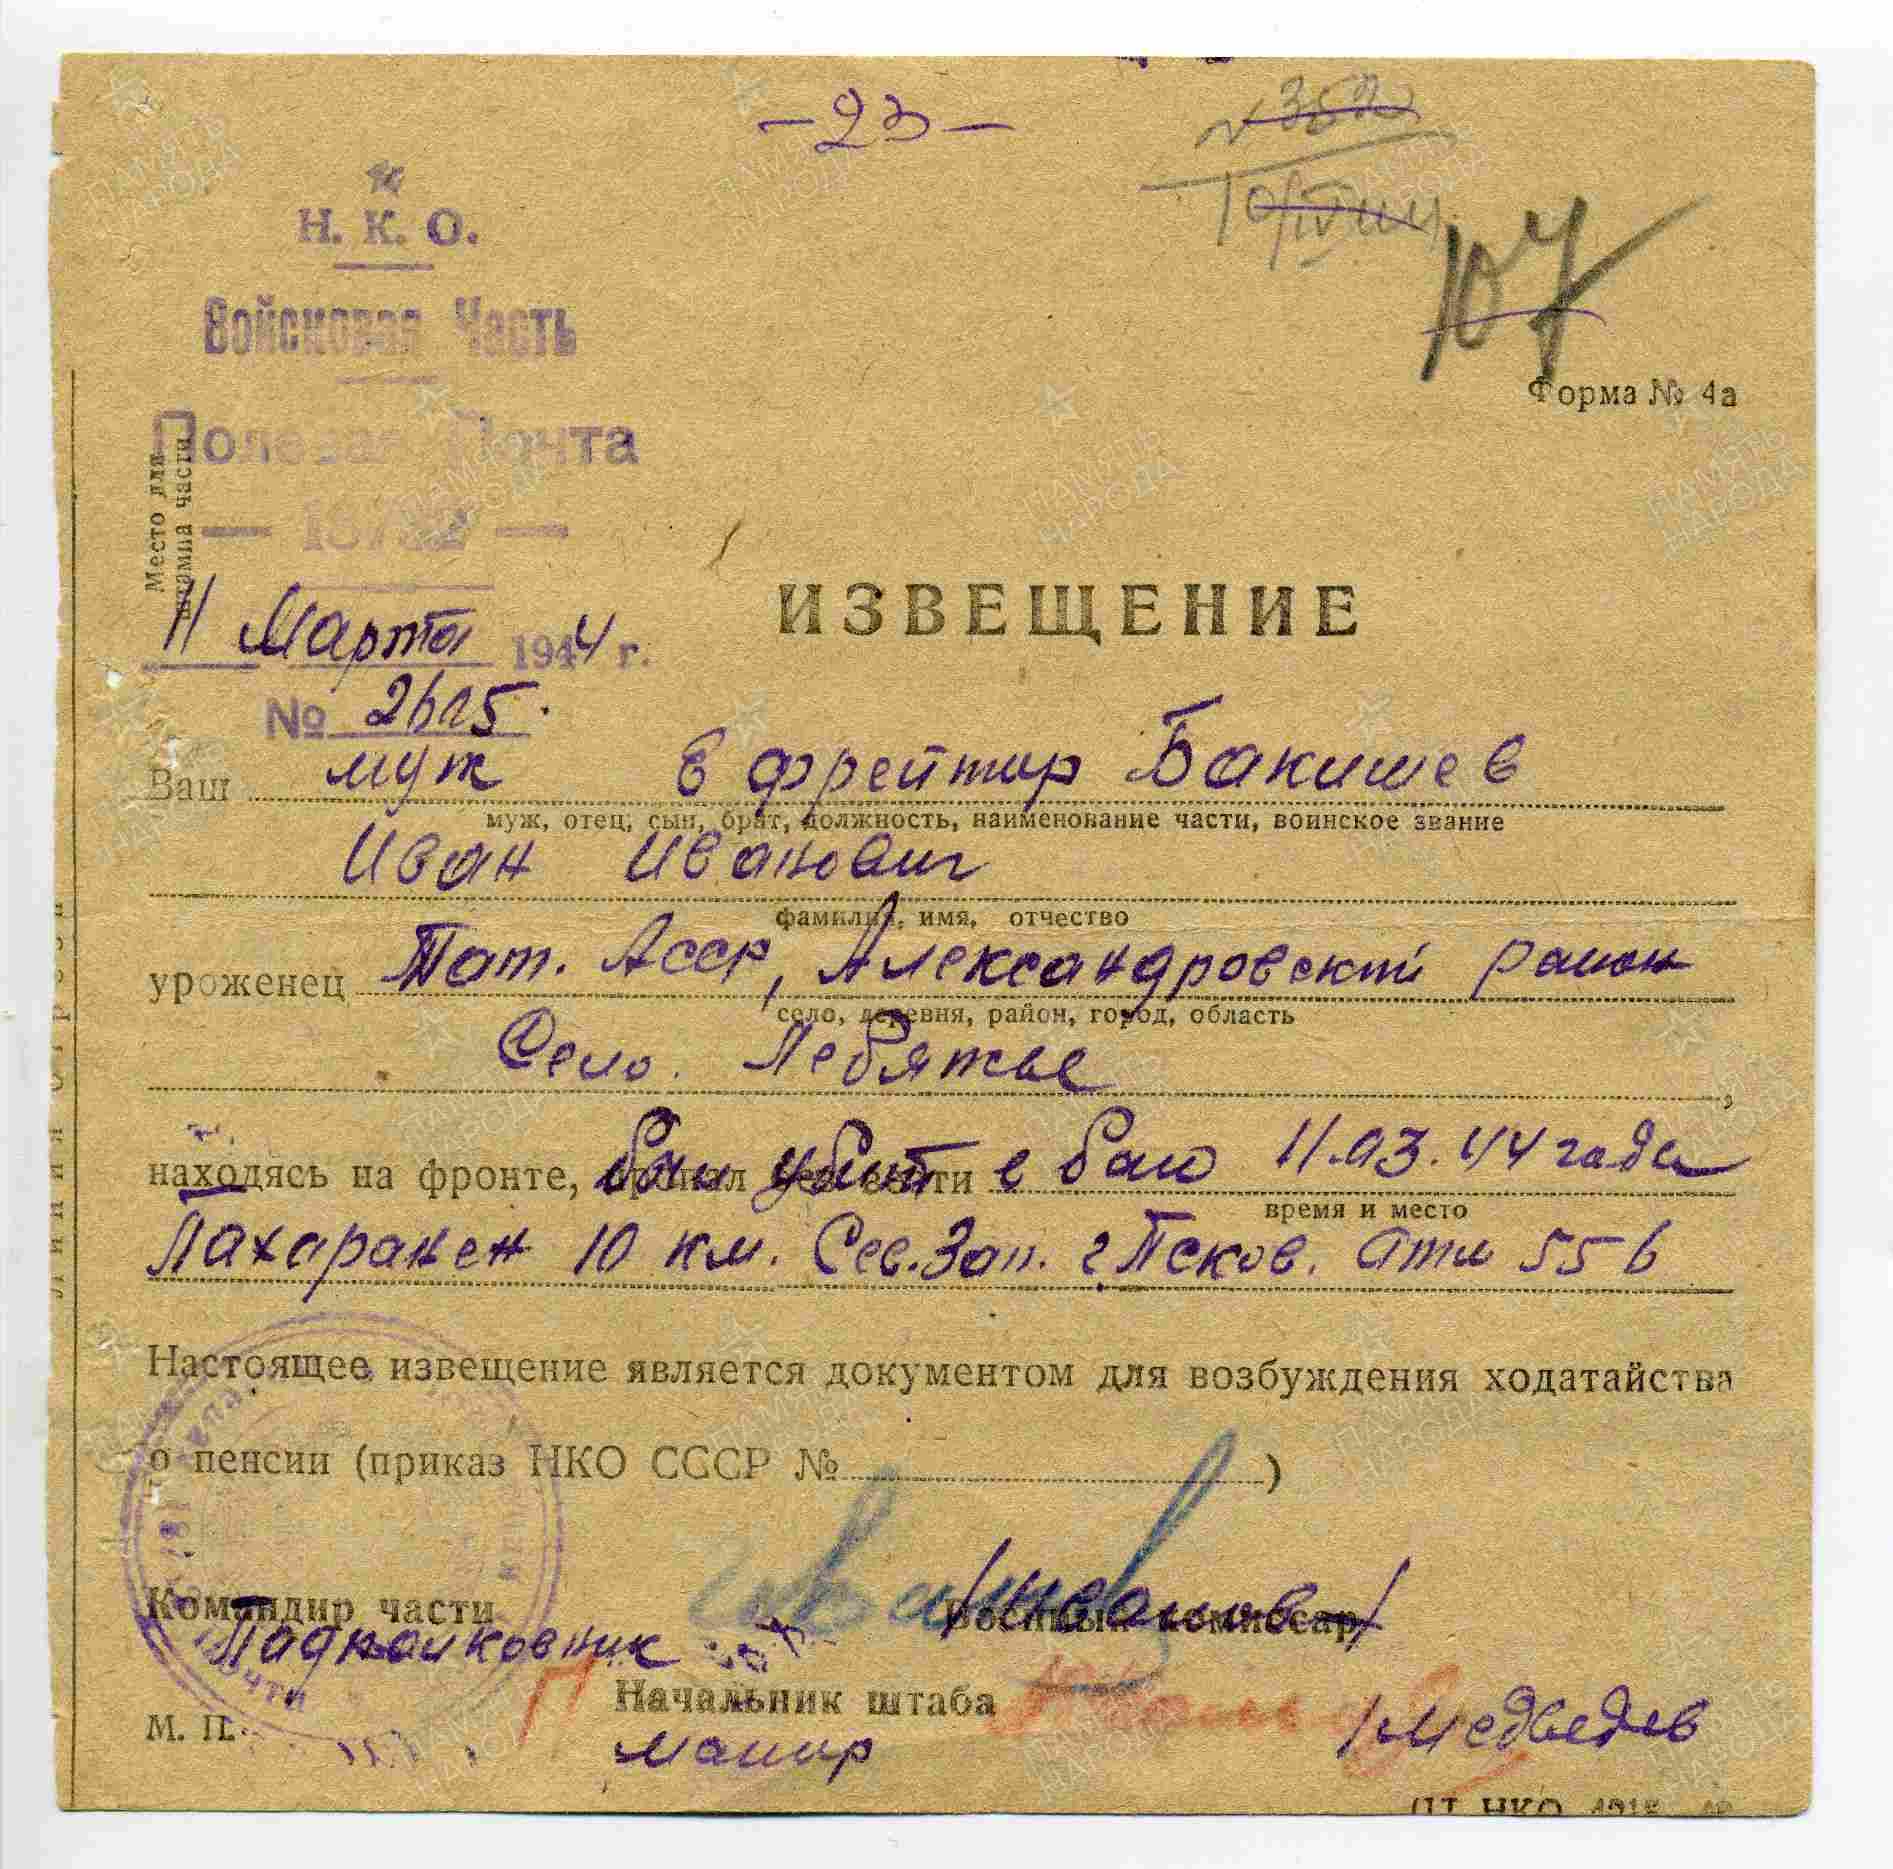 -23-
№ 352
107
Н. К. О.
Войсковая Часть
Форма № 4а
Полевая Почта
Место для
штампа части
11 Марта 1944 г.
ИЗВЕЩЕНИЕ
№ 2615.
Ваш муж Ефрейтир Бакишев
муж, отец, сын, брат, должность, наименование части, воинское звание
Иван Иванович
фамилия, имя, отчество
уроженец Тат. Асср, Александровский район
село, деревня, район, город, область
Село. Лебяжье ,
находясь на фронте, был убит в баю 11.03.44 года
время и место
Пахаранен 10 км. Сев.Зап. г.Псков.
Линия отреза
Настоящее извещение является документом для возбуждения ходатайства
о пенсии (приказ НКО СССР № )
Командир части Военный комиссар
Падполковник
Начальник штаба
М. П. Маиир /Медведев
ПАМЯТЬ НАРОДА